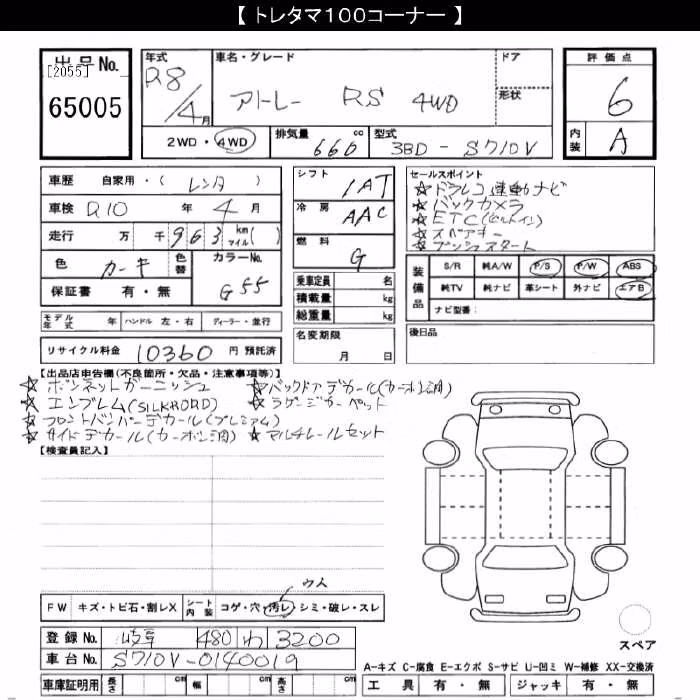 【 トレタマ100コーナー 】
出品No.
[2055]
65005
年式
R8/4月
車名・グレード
アトレー RS 4WD
ドア
形状
評価点
6
内装
A
2WD・4WD
排気量 660 cc
型式 3BD-S710V
車歴 自家用・( レンタ )
車検 R10 年 4 月
走行 万 千 963 km マイル( )
色 カーキ 色替
カラーNo. G55
保証書 有・無
シフト IAT
冷房 AAC
燃料 G
乗車定員 名
積載量 kg
総重量 kg
名変期限 月 日
セールスポイント
☆ドラレコ連動ナビ
☆バックカメラ
☆ETC(ビルトイン)
☆スペアキー
☆プッシュスタート
装備品
S/R 純A/W P/S P/W ABS
純TV 純ナビ 革シート 外ナビ エアB
ナビ型番:
モデル年式 年 ハンドル 左・右 ディーラー・並行
後日品
リサイクル料金 10360 円 預託済
【出品店申告欄(不良箇所・欠品・注意事項等)】
☆ボンネットガーニッシュ ☆バックドアデカール(カーボン調)
☆エンブレム(SILKROAD) ☆ラゲージカーペット
☆フロントバンパーデカール(プレミアム)
☆サイドデカール(カーボン調) ☆マルチレールセット
【検査員記入】
ウス
FW キズ・トビ石・割レX シート内装 コゲ・穴・汚レ・シミ・破レ・スレ
登録No. 岐阜 480 わ 3200
車台No. S710V-0140019
スペア
A-キズ C-腐食 E-エクボ S-サビ U-凹ミ W-補修 XX-交換済
車庫証明用 長さ cm 幅 cm 高さ cm
工具 有・無 ジャッキ 有・無